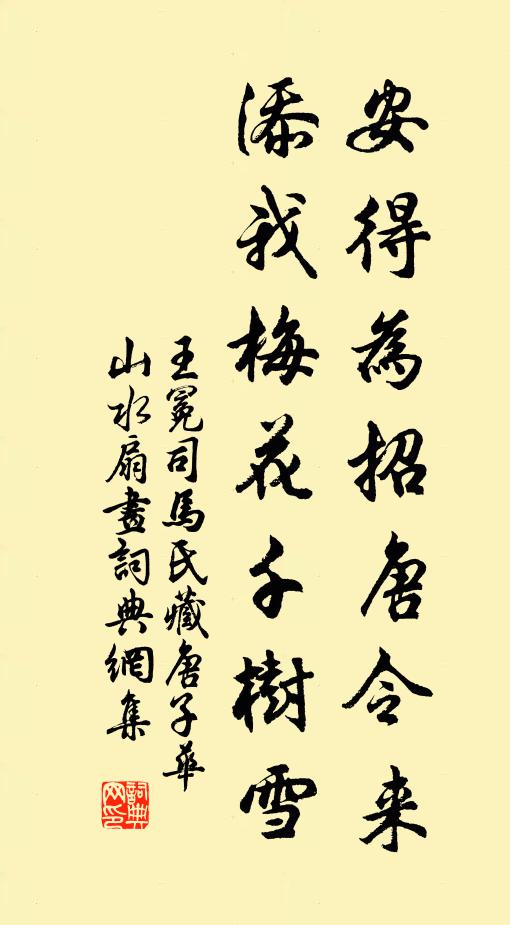 安得為招唐令来
添我梅花千樹雪
王冕司馬氏藏唐子華
山水扇畫詞典網集
詞典网印